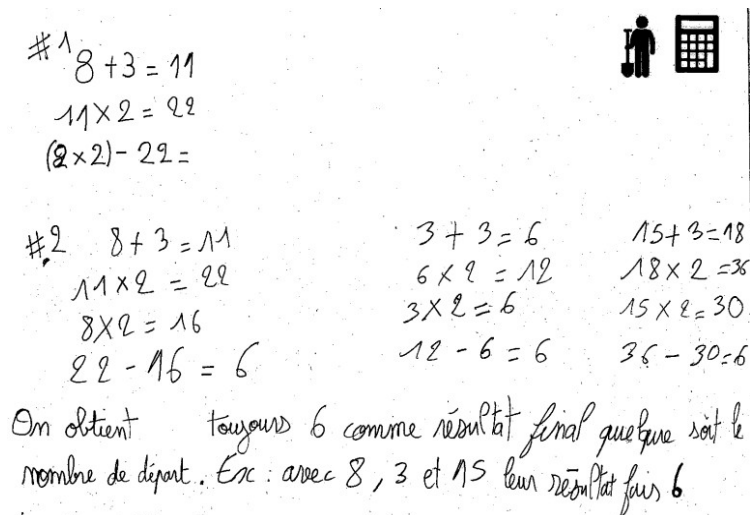 #1
8 + 3 = 11
11 × 2 = 22
(8 × 2) - 22 =
#2 8 + 3 = 11
11 × 2 = 22
8 × 2 = 16
22 - 16 = 6
3 + 3 = 6
6 × 2 = 12
3 × 2 = 6
12 - 6 = 6
15 + 3 = 18
18 × 2 = 36
15 × 2 = 30
36 - 30 = 6
On obtient toujours 6 comme résultat final quelque soit le
nombre de départ. Exc : avec 8, 3 et 15 leur résultat fais 6